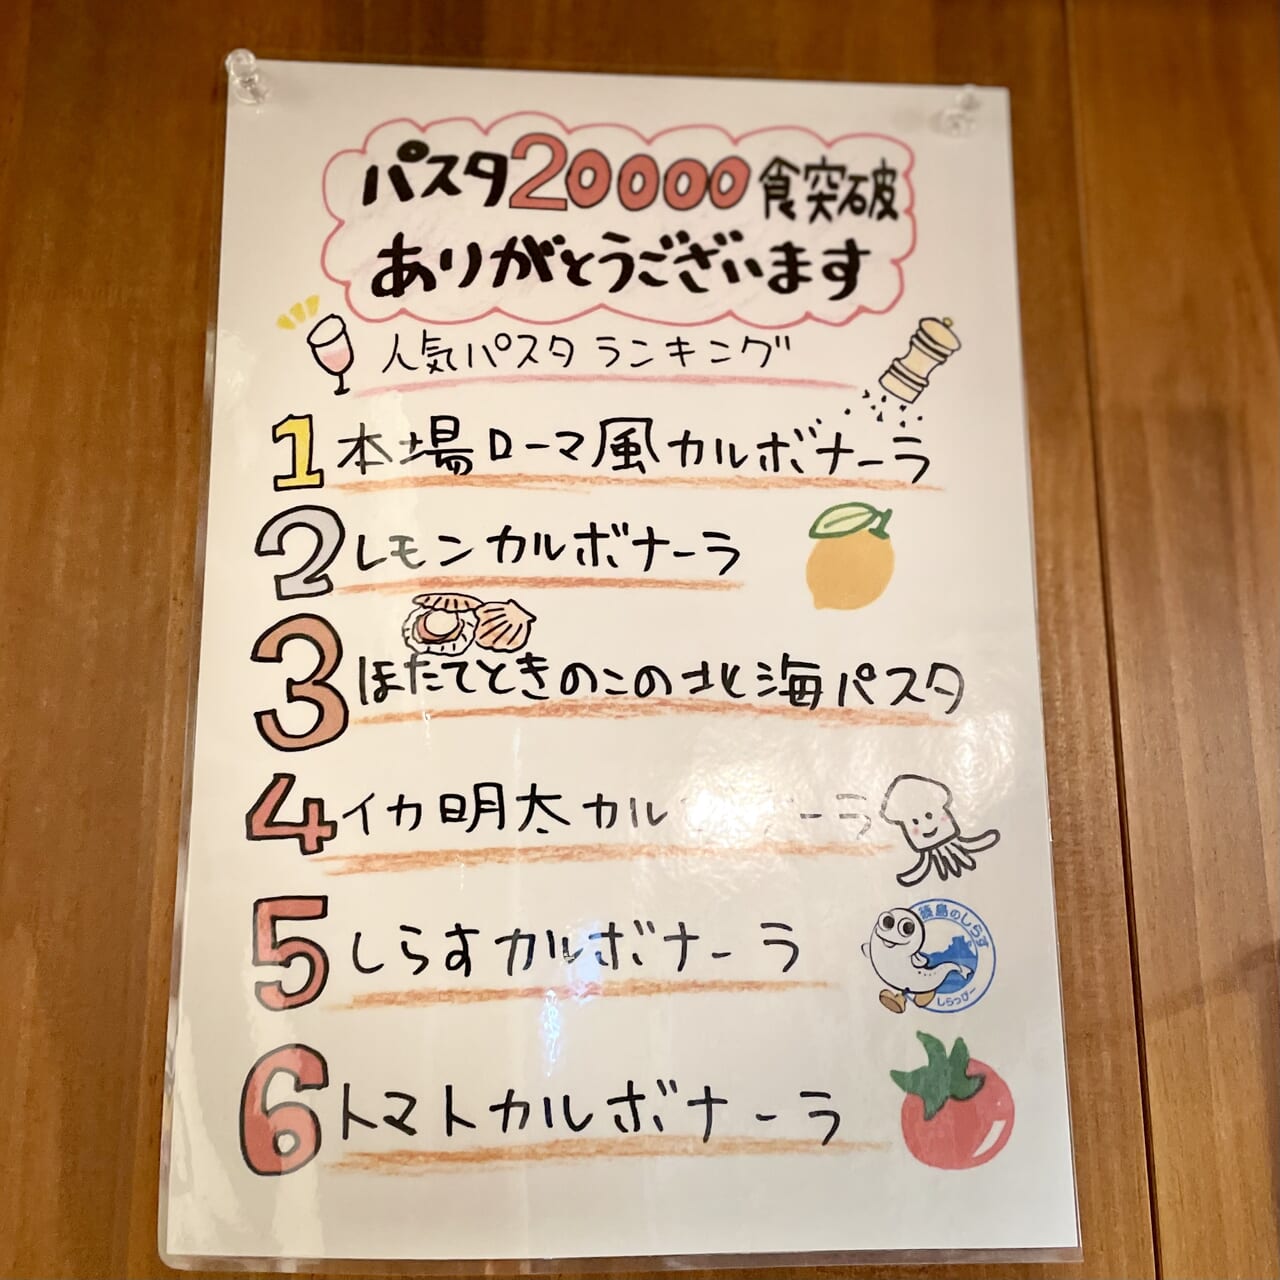 パスタ20000食突破
ありがとうございます
人気パスタランキング
1 本場ローマ風カルボナーラ
2 レモンカルボナーラ
3 ほたてときのこの北海パスタ
4 イカ明太カルボナーラ
5 しらすカルボナーラ
島のしらす
しらっぴー
6 トマトカルボナーラ